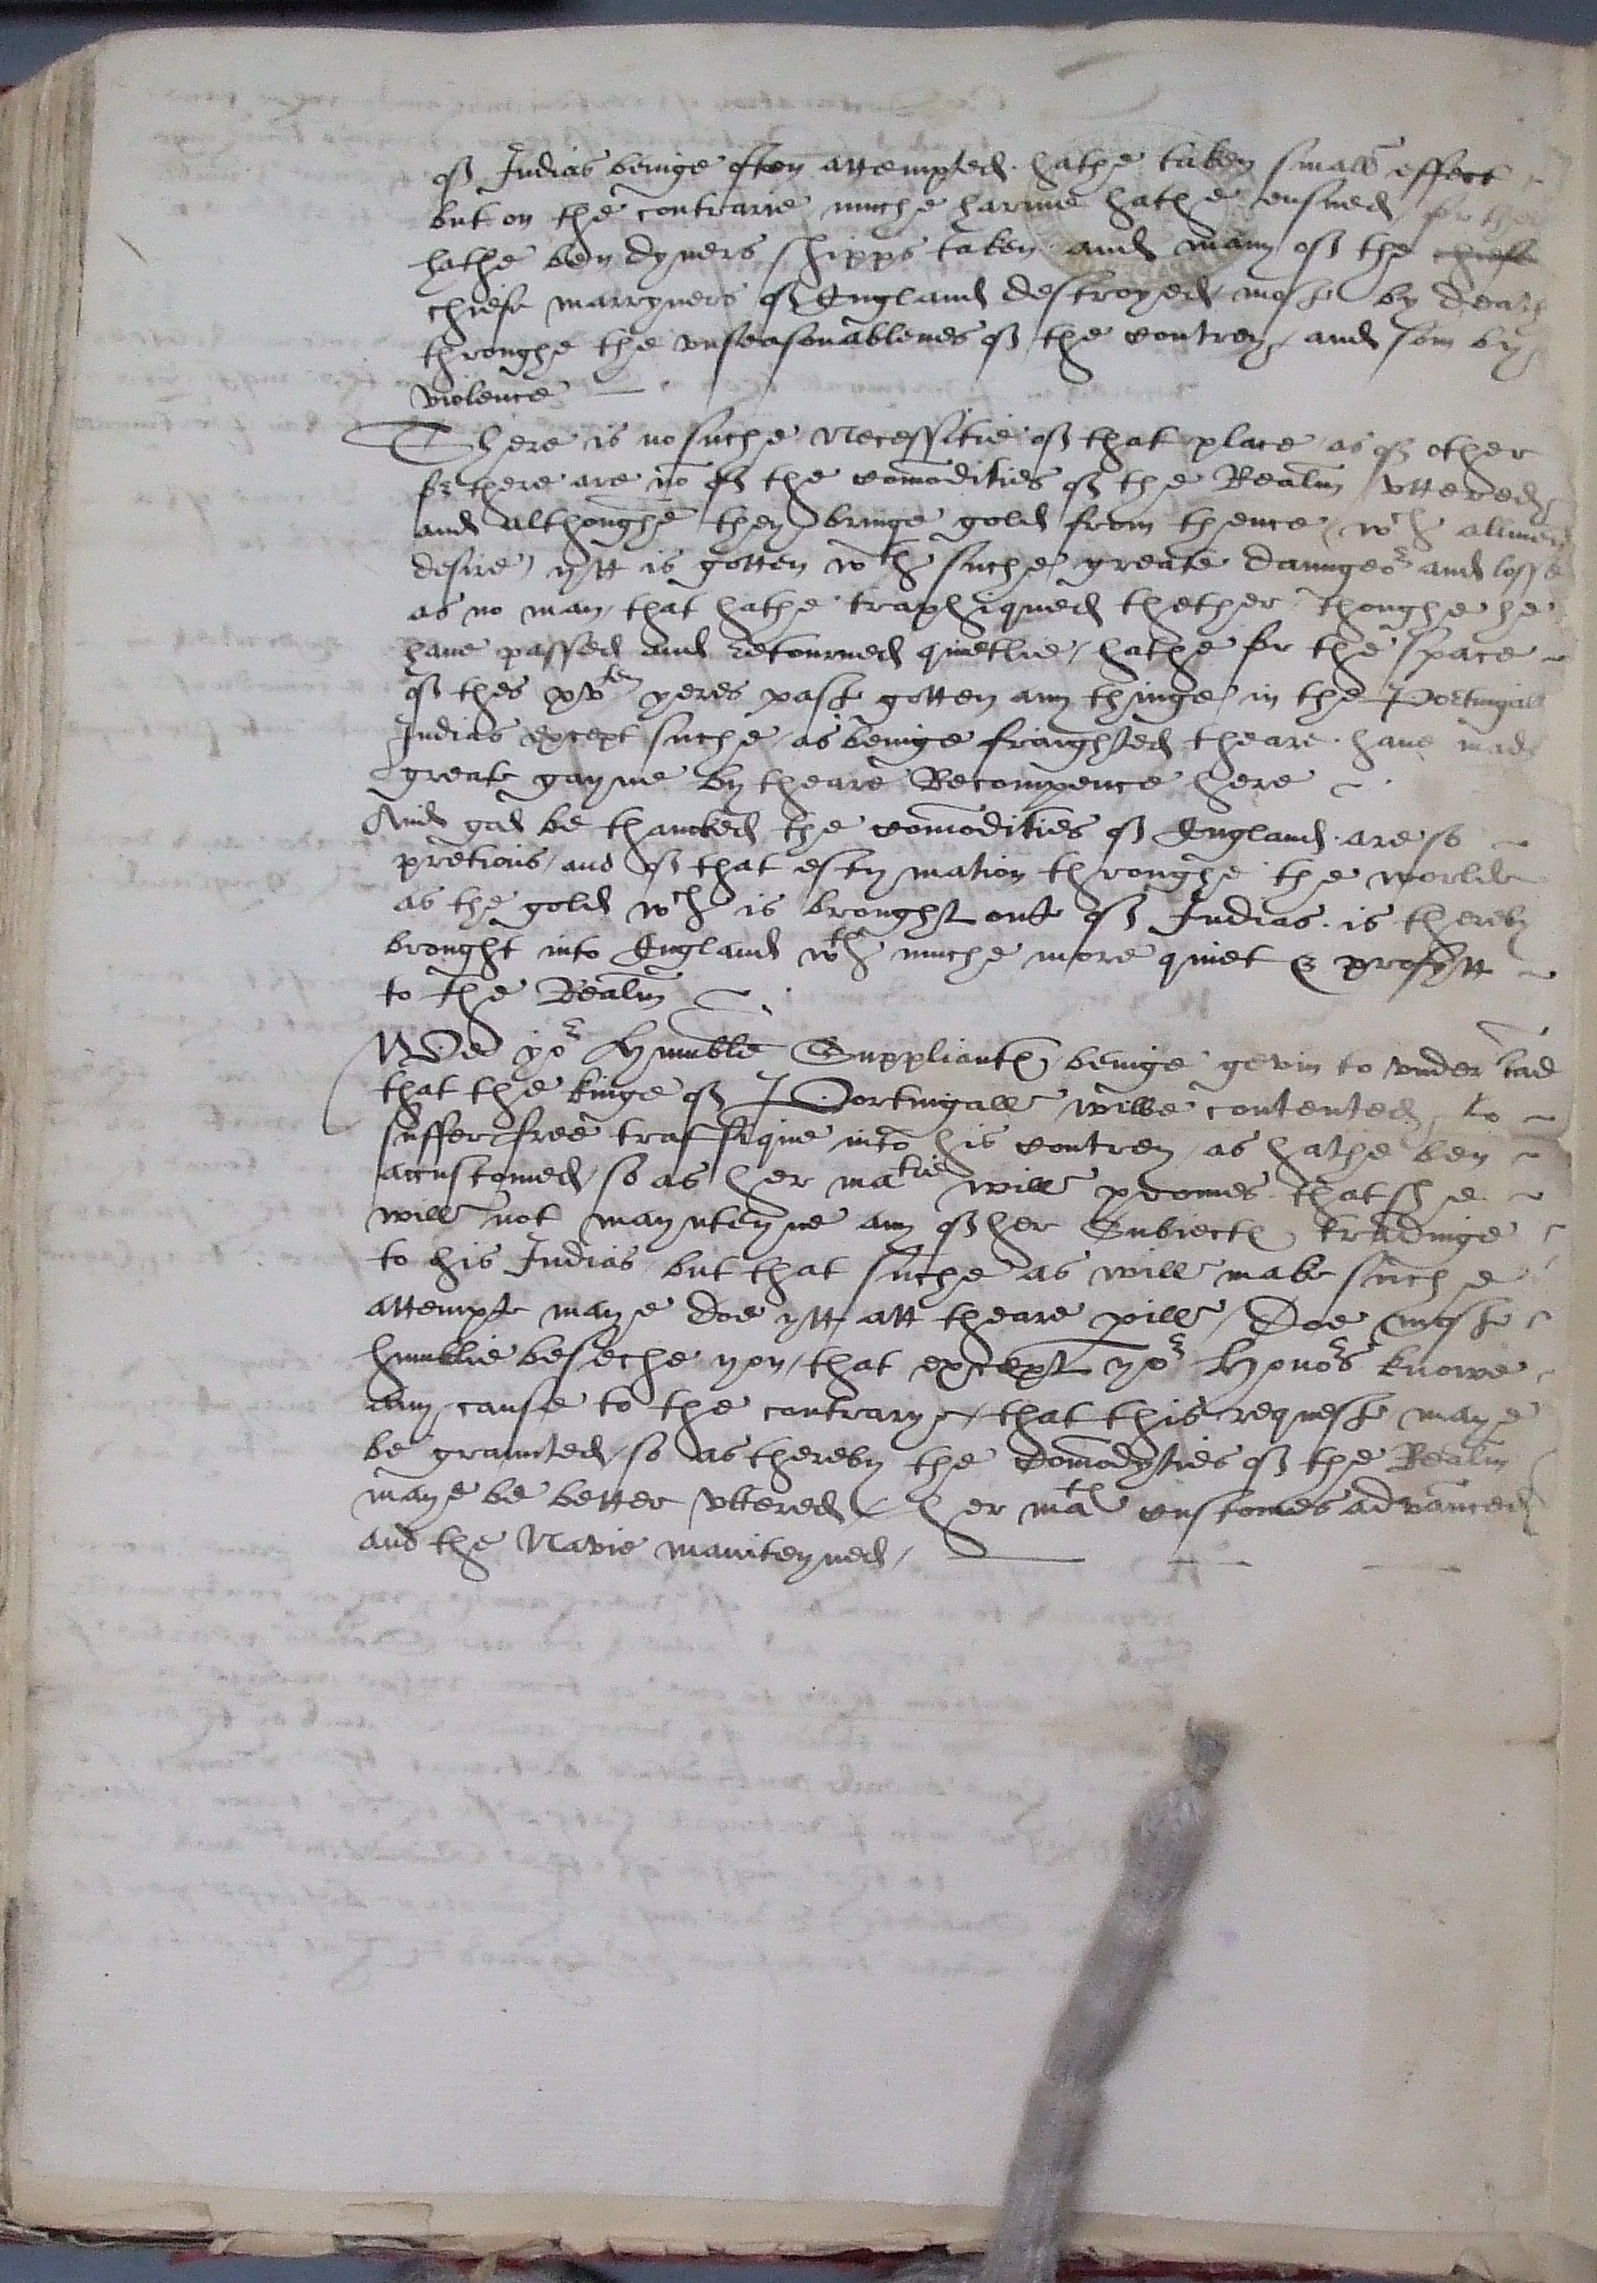 of Indias beinge often attempted. hathe taken small effect
but on the contrarie muche harme hathe ensued for the
hathe ben dyuers shipps taken and many of the chiefe
chiefe marryners of England destroyed most by death
throughe the vnseasonablenes of the contrey, and som by
violence
There is no suche necessitie of that place as of other
for there are no of the comodities of the Realm vttered
and althoughe they bringe gold from thence, wch all men
desire, ytt is gotten wth suche greate daungeor and losse
as no man, that hathe traphiqued thether, thoughe he
haue passed and retourned quietlie, hathe for the space
of thes xvten yeres past gotten any thinge in the Portingall
Indias except suche, as beinge fraighted theare. haue made
great gayne by theare Recompence here
And god be thancked the comodities of England. are so
pretious, and of that estymation throughe the worlde
as the gold wch is brought out of Indias. is thereby
brought into England wth muche more quiet & profytt
to the Realm
Wee yor Humble Suppliantes, beinge gevin to vnder tand
that the kinge of Portingall wilbe contented, to
suffer free traffique into his contrey as hathe ben
accustomed, so as her matie will promes that she
will not maynteyne any of her Subiectes tradinge
to his Indias but that suche as will make suche
attempte maye doe ytt att theare perill, Doe most
humblie beseche you, that except yor Honors knowe
any cause to the contrarye, that this request maye
be graunted, so as thereby the Comodyties of the Realm
maye be better vttered, her mats customes advanced
and the Navie mainteyned,